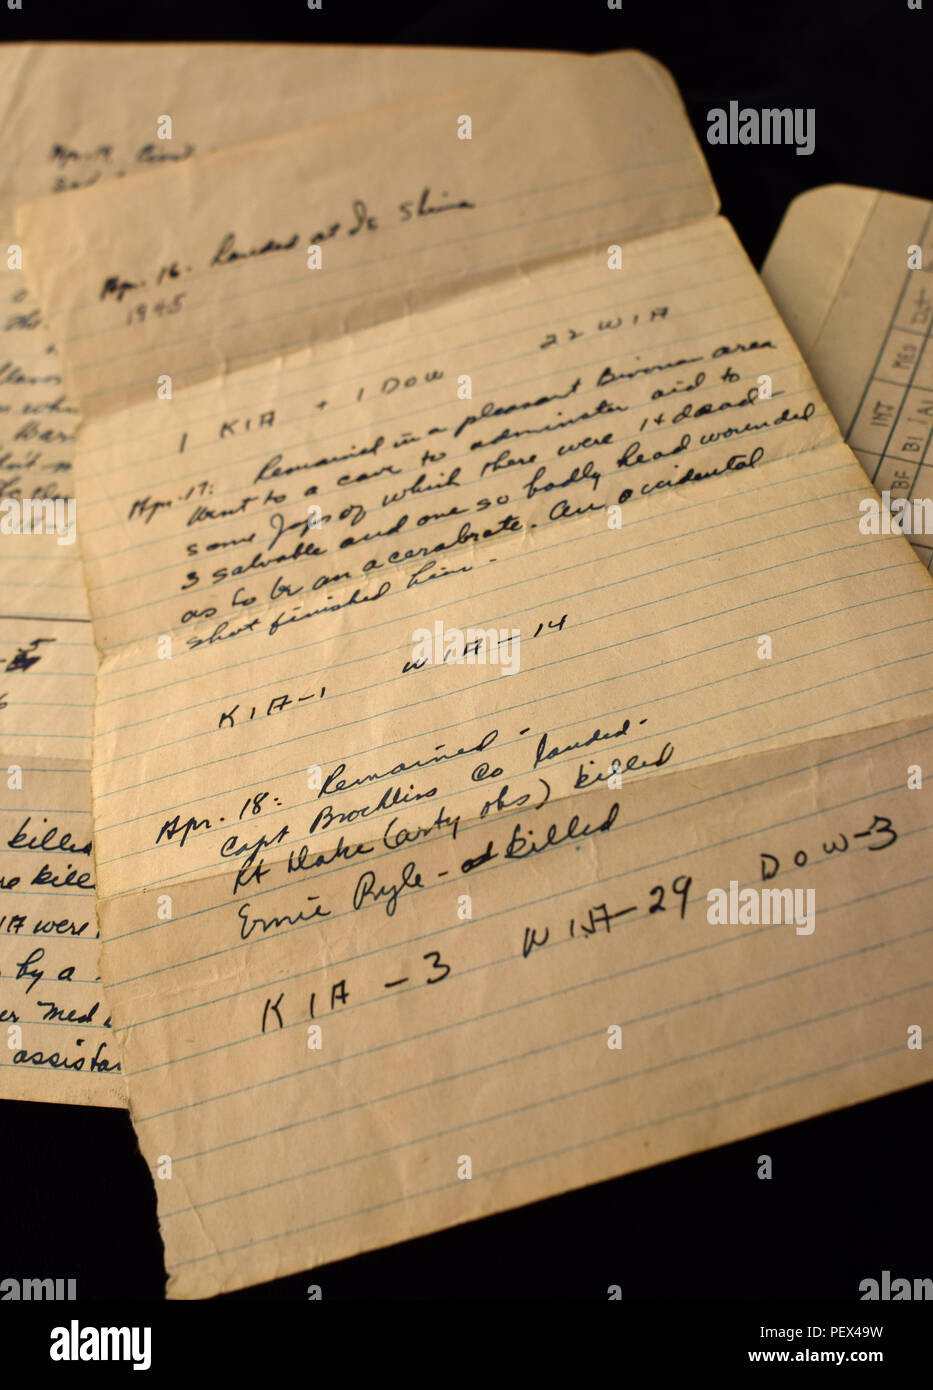 Apr. 19.
Apr. 16. Landed at Ie Shima
1945
1 KIA + 1 DOW 22 WIA
Apr. 17: Remained in a pleasant Bivouac area
Went to a cave to administer aid to
some Japs of which there were 14 dead -
3 salvable and one so badly head wounded
as to be an a cerebrate. An accidental
shot finished him -
KIA-1 WIA-14
Apr. 18: Remained -
Capt Co landed -
Lt (arty obs) killed
Ernie Pyle - killed
KIA-3 WIA-29 DOW-3
killed
kill
were
by a
Med
assista
INT MED
BF BI
alamy
Image ID: PEX49W
www.alamy.com